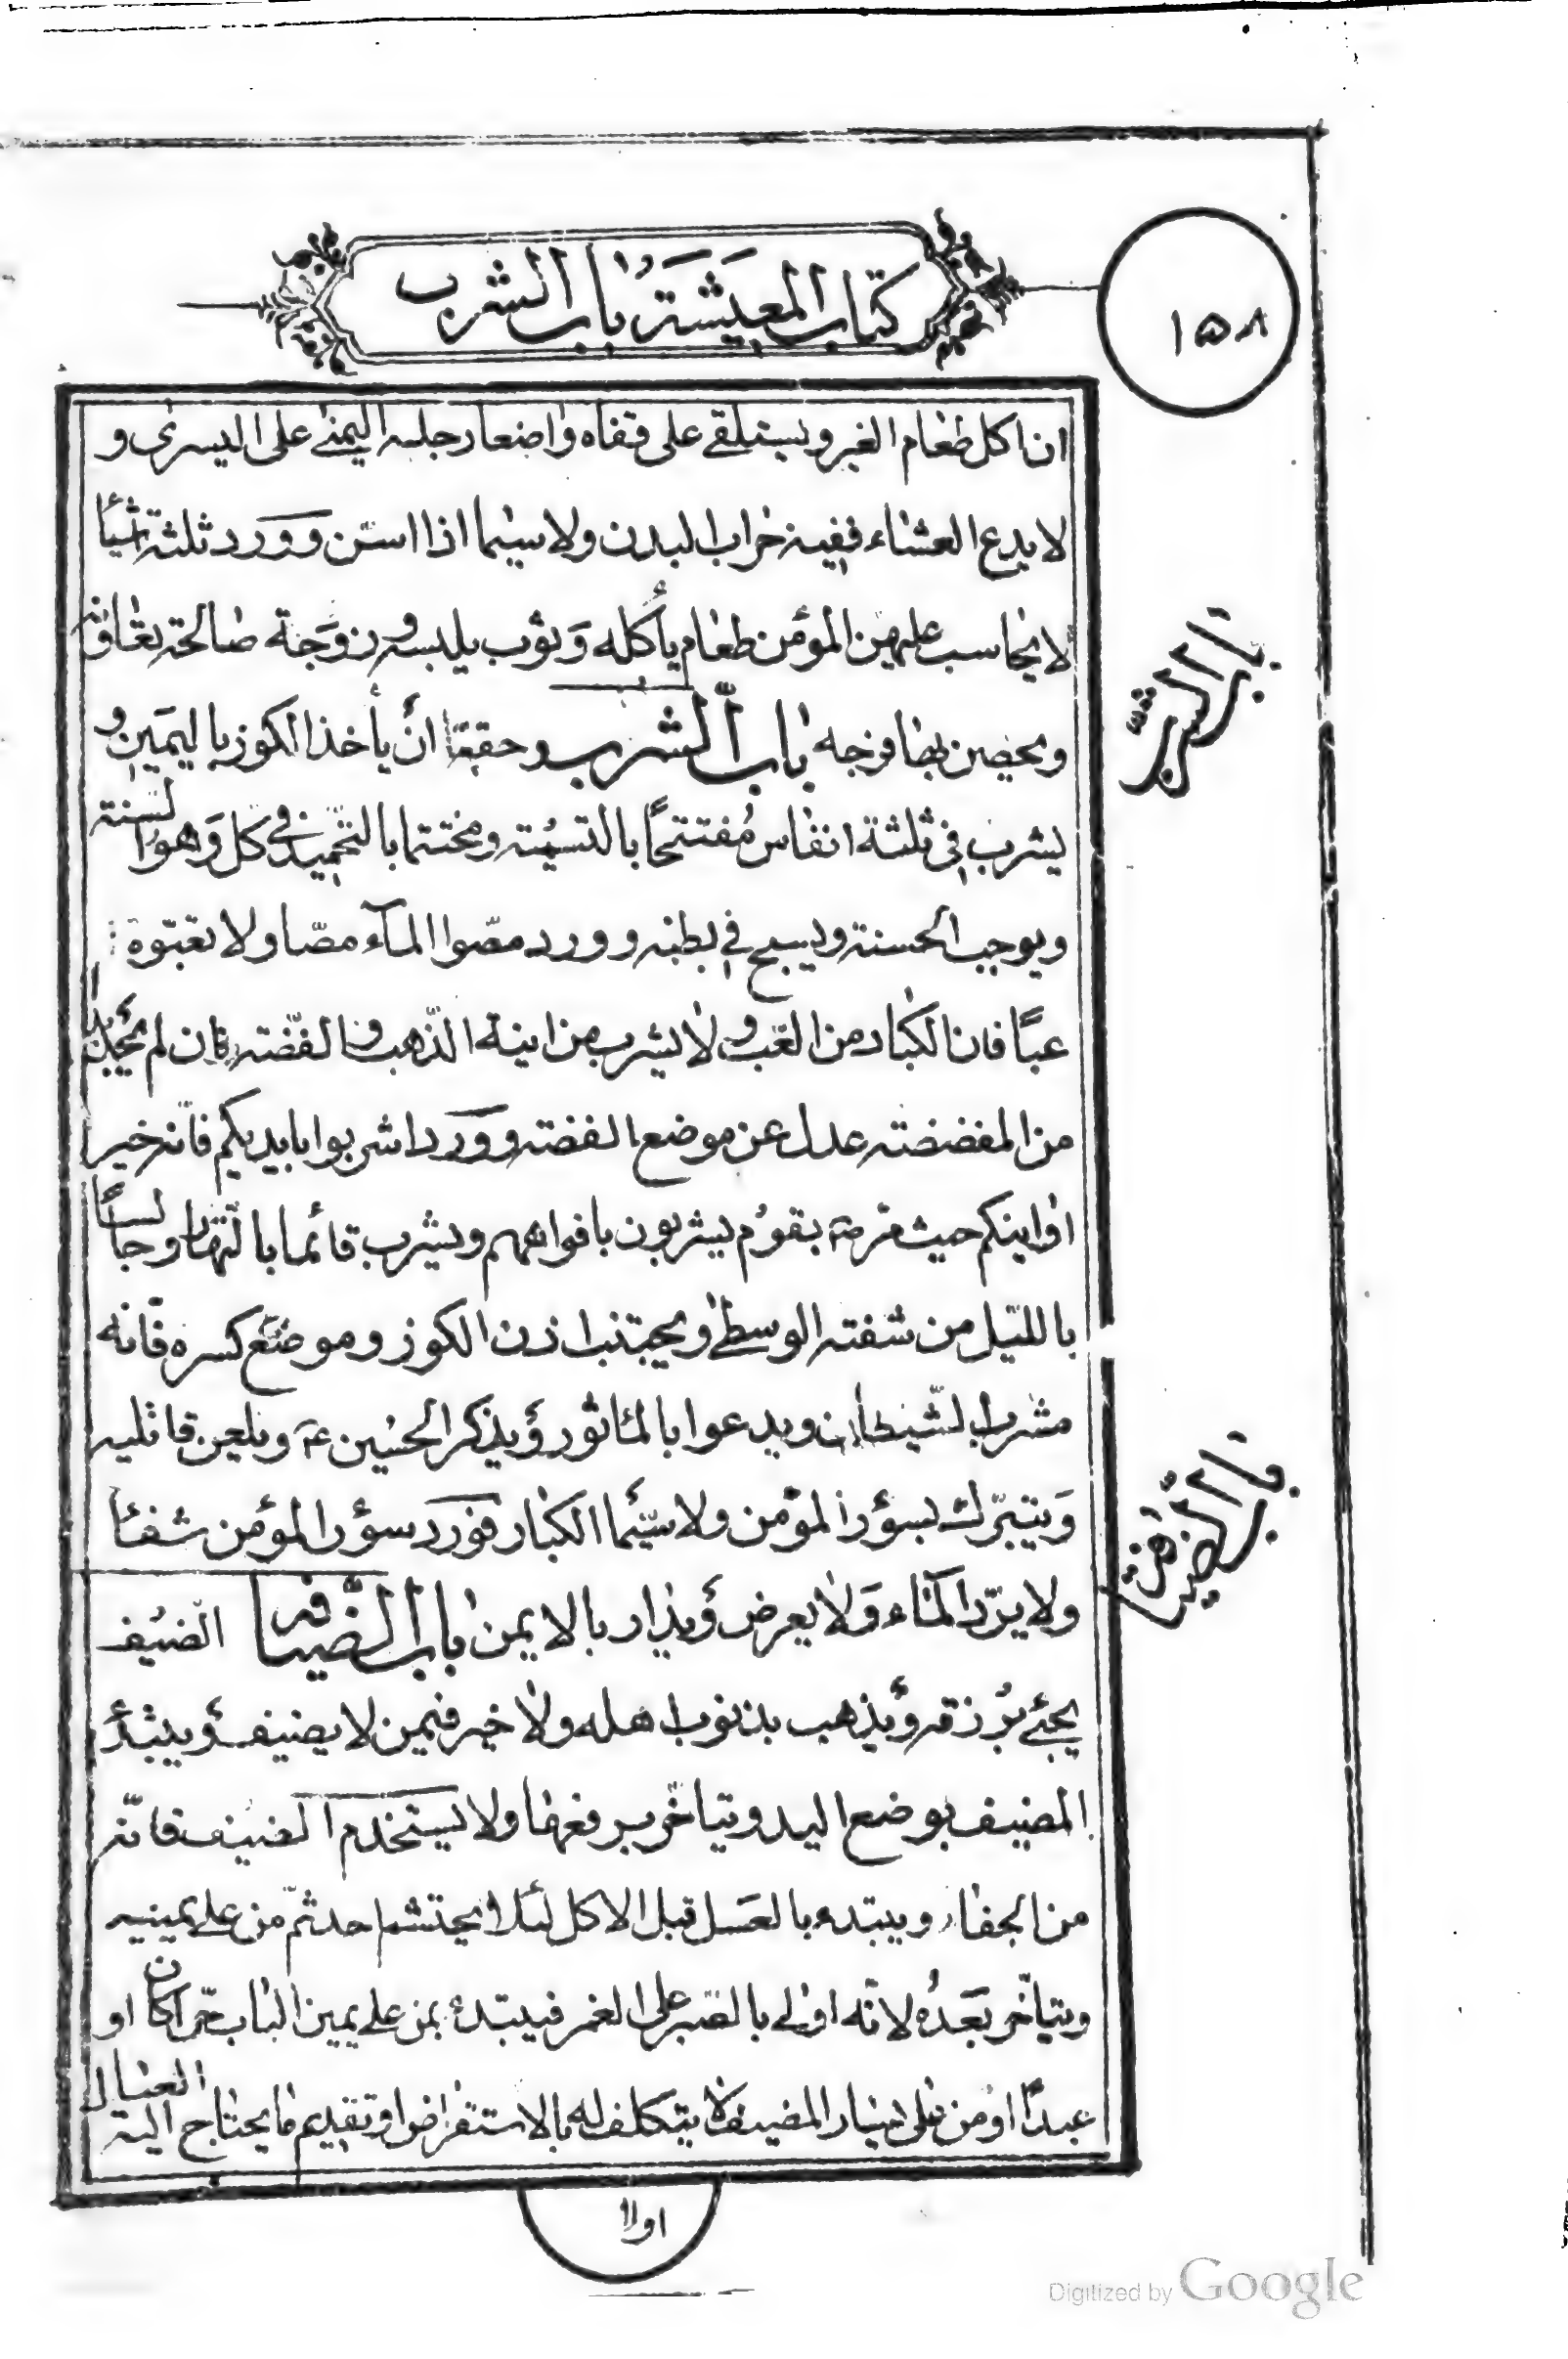 ١٥٨
كتاب المعيشة باب الشرب
ان اكل طعام الغير ويستلقى على قفاه واضعا رجله اليمنى على اليسرى و
لا يدع العشاء ففيه خراب البدن ولا سيما اذا استن وورد ثلثة اشياء
لا يحاسب عليهن المؤمن طعام يأكله وثوب يلبسه وزوجة صالحة تعاونه
ويحصن بها فرجه باب الشرب وحقه ان يأخذ الكوز باليمين و
يشرب في ثلثة انفاس مفتتحاً بالتسمية ومختتما بالتحميد في كل وهو السنة
ويوجب الحسنة ويسبح في بطنه وورد مصّوا المآء مصّا ولا تعبّوه
عبّاً فان الكباد من العّب ولا يشرب من انية الذّهب والفضّة فان لم يجد بدا
من المفضضة عدل عن موضع الفضة وورد اشربوا بايديكم فانّه خير
اوانيكم حيث مّر صلى بقوم يشربون بافواههم ويشرب قائما بالنّهار وجالسا
بالليل من شفته الوسطى ويجتنب اذن الكوز وموضع كسره فانّه
مشرب الشيطان ويدعوا بالماثور ويذكر الحسين ع ويلعن قاتليه
ويتبرّك بسؤر المؤمن ولا سيّما الكبار فورد سؤر المؤمن شفاء
ولا يردّ المآء ولا يعرض ويدار بالايمن باب الضيافة الضيف
يجئ برزقه ويذهب بذنوب اهله ولا خير فيمن لا يضيف ويبتدأ
المضيف بوضع اليد ويتاخّر برفعها ولا يستخدم الضيف فانّه
من الجفاء ويبتدء بالغسل قبل الاكل لئلا يحتشم احد ثمّ من على يمينه
ويتاخّر بعده لانّه اولى بالصّبر على الغمر فيبتدئ بمن على يمين الباب حرا كان او
عبداً او من على يسار المضيف ولا يتكلف له بالاستقراض او تقديم ما يحتاج اليه العيال
باب الشرب
باب الضيافة
اولا
Digitized by Google